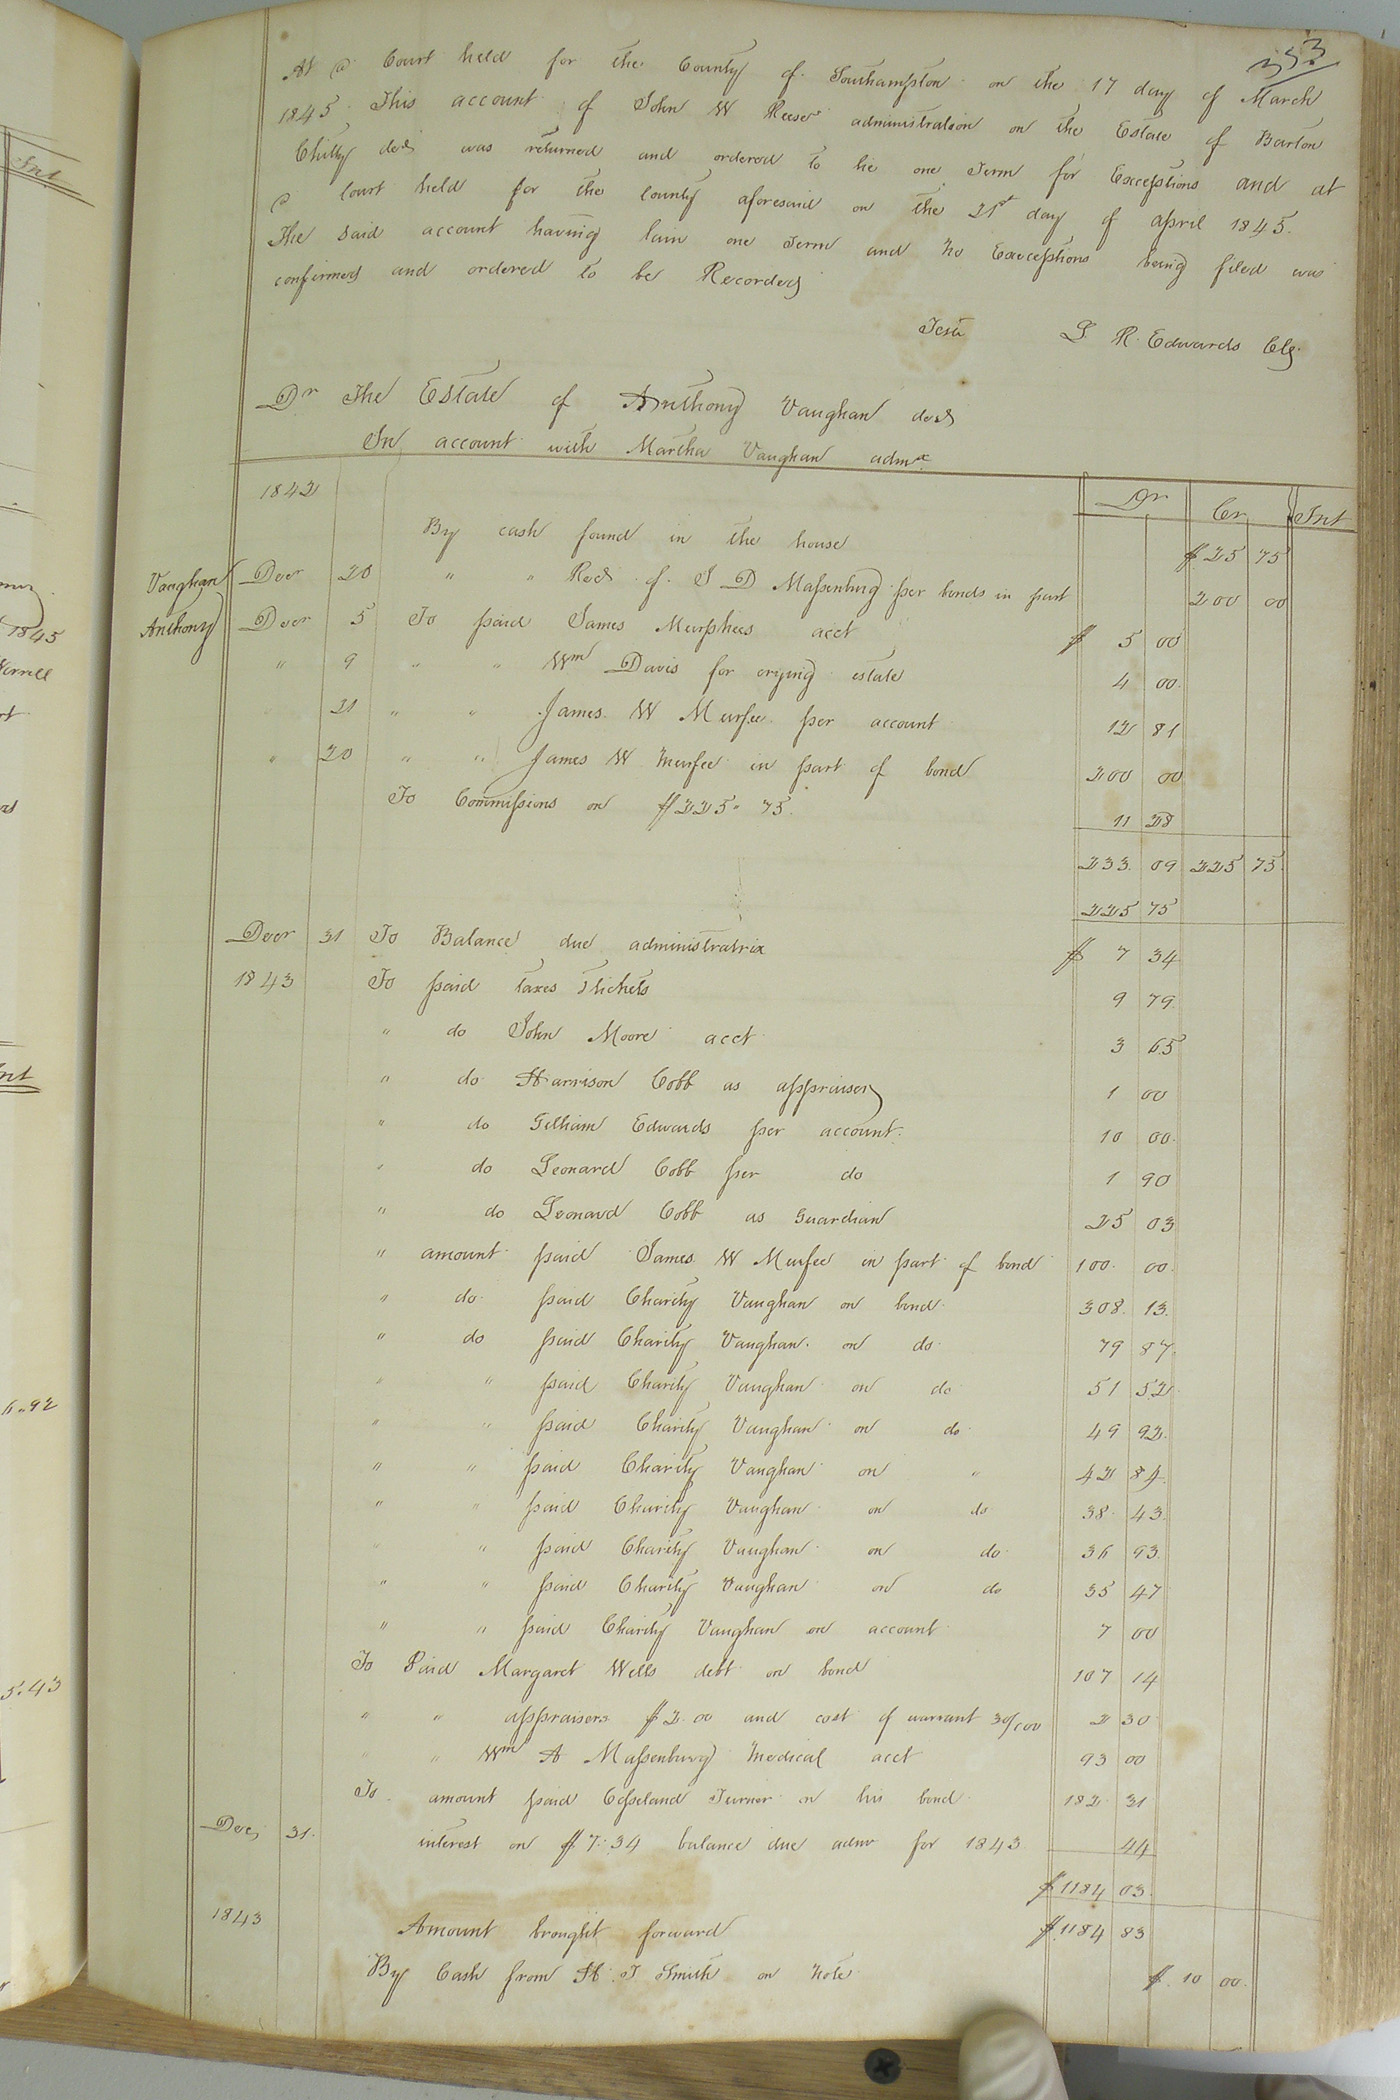 353
At a Court held for the County of Southampton on the 17 day of March
1845 This account of John W Reese administration on the Estate of Barton
Chitty decd was returned and ordered to lie one Term for Exceptions and at
a Court held for the County aforesaid on the 21st day of april 1845.
The said account having lain one Term and no Exceptions being filed was
confirmed and ordered to be Recorded
Teste L. R. Edwards Clk.
Dr The Estate of Anthony Vaughan decd
In account with Martha Vaughan admx
1842 Dr Cr Int
By cash found in the house $25 75
Vaughan
Anthony
Decr 20 " " Recd of S D Massenburg per bonds in part 200 00
Decr 5 To paid James Murphees acct $ 5 00
" 9 " " Wm Davis for crying estate 4 00
21 " " James W Murfee per account 12 81
" 20 " " James W Murfee in part of bond 200 00
To Commissions on $225.75 11 28
233 09 225 75
225 75
Decr 31 To Balance due administratrix $ 7 34
1843 To paid taxes Tickets 9 79
" do John Moore acct 3 65
" do Harrison Cobb as appraiser 1 00
" do Gilliam Edwards per account 10 00
" do Leonard Cobb per do 1 90
" do Leonard Cobb as Guardian 25 03
" amount paid James W Murfee in part of bond 100 00
" do paid Charity Vaughan on bond 308 13
" do paid Charity Vaughan on do 79 87
" " paid Charity Vaughan on do 51 52
" " paid Charity Vaughan on do 49 92
" " paid Charity Vaughan on " 42 84
" " paid Charity Vaughan on do 38 43
" " paid Charity Vaughan on do 36 93
" " paid Charity Vaughan on do 35 47
" " paid Charity Vaughan on account 7 00
To Paid Margaret Wells debt on bond 107 14
" " appraisers $2.00 and cost of warrant 30/100 2 30
" " Wm A Massenburg Medical acct 93 00
To amount paid Copeland Turner on his bond 182 31
Dec 31. interest on $7.34 balance due admr for 1843 44
$1184 03
1843 Amount brought forward $1184 83
By Cash from H. T Smith on note $ 10 00
Int
1845
6.92
5.43